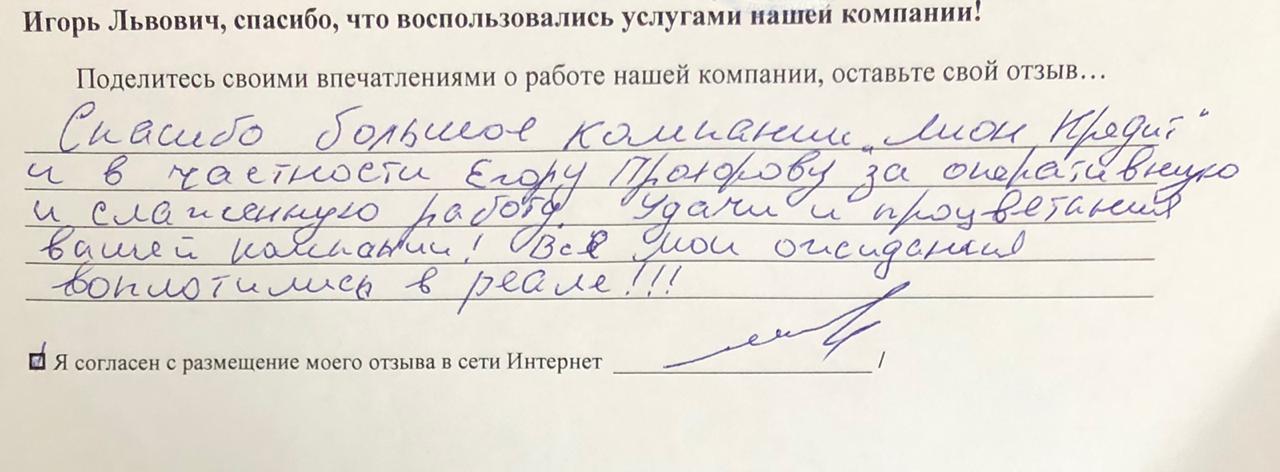 Игорь Львович, спасибо, что воспользовались услугами нашей компании!
Поделитесь своими впечатлениями о работе нашей компании, оставьте свой отзыв…
Спасибо большое компании „Лион Кредит"
и в частности Егору Прохорову за оперативную
и слаженную работу. Удачи и процветания
вашей компании! Все мои ожидания
воплотились в реале!!!
Я согласен с размещение моего отзыва в сети Интернет /